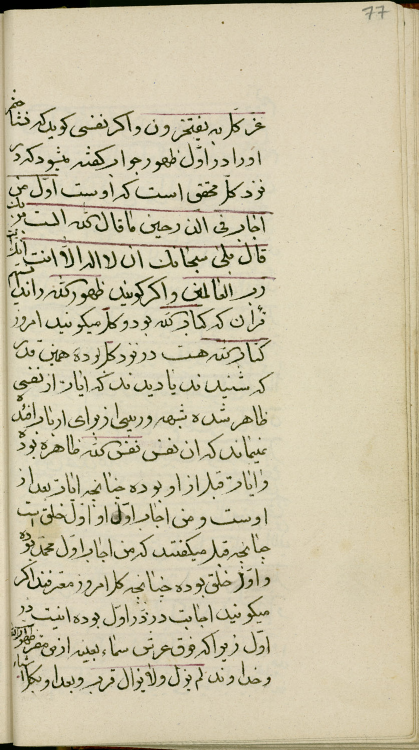 77
عز کل به یفتخرون و اگر نفسی گوید که نشناختم
او را در اول ظهور جواب گفته میشود که در
نزد کل محقق است که اوست اول من
اجاب فی الذر حین ما قال الله الست بربک
قال بلی سبحانک ان لا اله الا انت
رب العالمین و اگر گویند ظهور الله دانستیم
قرآن که کتاب الله بود و کل میگویند امروز
کتاب الله هست در نزد کل بوده همین قدر
که شنیدند یا دیدند که آیات از نفسی
ظاهر شده شبهه و ریبی از برای اربابا فئده
نمیماند که آن نفس نفس الله ظاهره بوده
و آیات قبل از او بوده چنانچه آیات بعد از
اوست و من اجاب اول او اول خلق است
چنانچه قبل میگفتند که من اجاب اول محمد بوده
و اول خلق بوده چنانچه کل امروز معترفند اگر
میگویند اجابت در ذر اول بوده اینست در
اول زیرا که فوق عرش سماء بعینه ارض مقر ظهور الله
و خداوند لم یزل و لا یزال قرب و بعد او بکل اشیاء